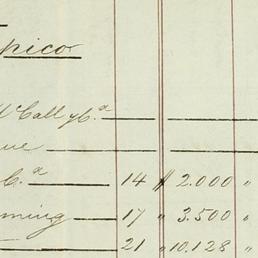 pico
Call y Ca
Ca 14 $ 2.000 "
ming 17 " 3.500 "
21 " 10.128 "